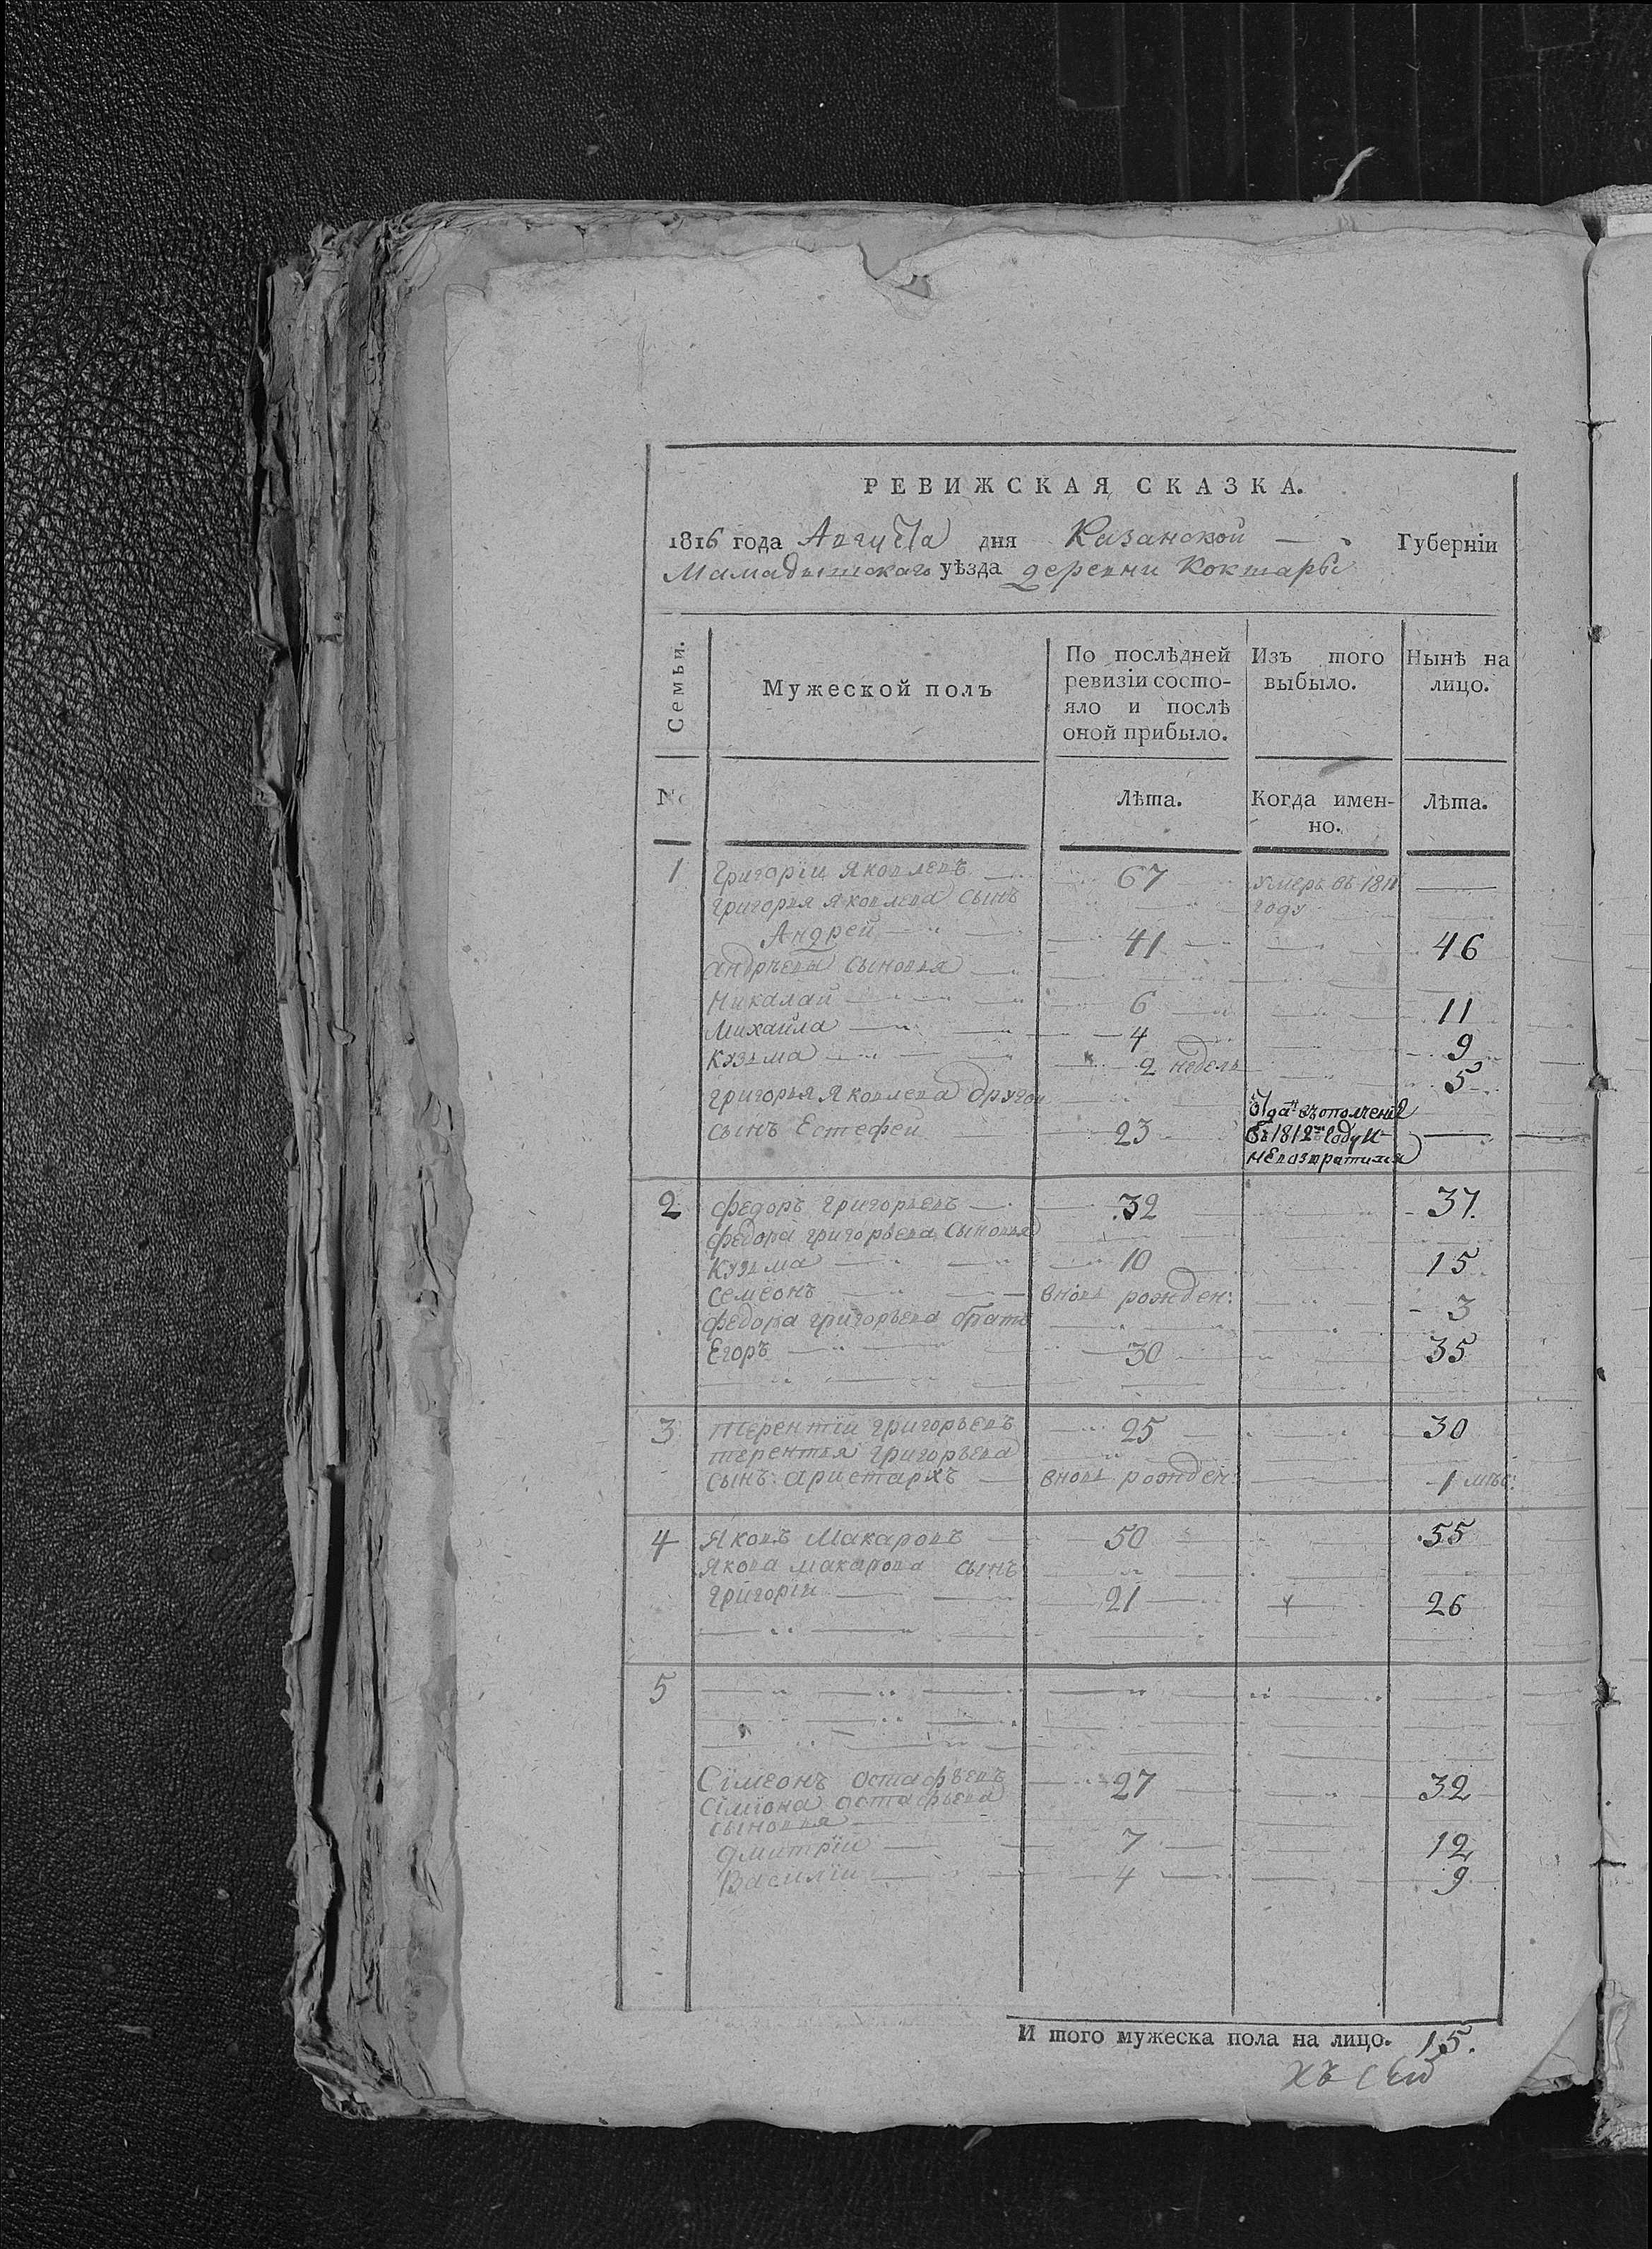 РЕВИЖСКАЯ СКАЗКА.
1816 года Августа дня Казанской Губерніи
Мамадышскаго уѣзда деревни Коктары
Семьи.
Мужеской полъ
По послѣдней ревизіи состо-
яло и послѣ
оной прибыло.
Изъ того
выбыло.
Нынѣ на
лицо.
№
Лѣта.
Когда имен-
но.
Лѣта.
1 Григорїи Яковлевъ 67 умеръ въ 1811
Григорья Яковлева сынъ году
Андрей 41 46
андрѣевы сыновья
Никалаи 6 11
Михаила 4 9
Кузьма 2 недель 5
григорья Яковлева другои
сынъ Естефеи 23
Отдан въ ополчение
въ 1812м году и
невозвратился
2 федоръ григорьевъ 32 37.
федора григорьева сыновья
Кузьма 10 15
семеонъ вновь рожден: 3
федора григорьева братъ
Егоръ 30 35
3 терентїи григорьевъ 25 30
терентья григорьева
сынъ аристархъ вновь рожден: 1 мѣс:
4 Яковъ Макаровъ 50 55
Якова макарова сынъ
григорїи 21 26
5
Сїмеонъ остафьевъ 27 32
Сїмїона остафьева
сыновья
дмитрїи 7 12
Василїи 4 9
И того мужеска пола на лицо. 15.